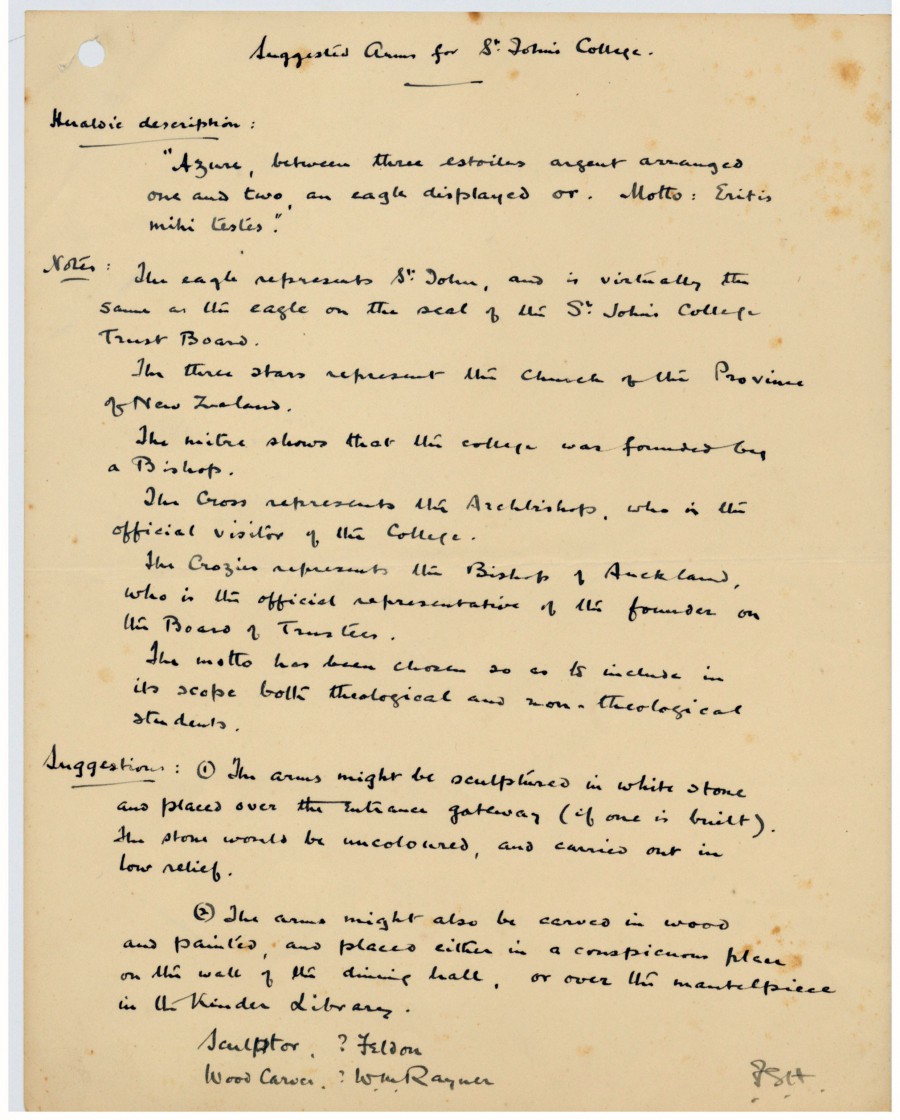 Suggested Arms for St. John's College.
Heraldic description:
"Azure, between three estoiles argent arranged
one and two, an eagle displayed or. Motto: Eritis
mihi testes."
Notes: The eagle represents St. John, and is virtually the
same as the eagle on the seal of the St. John's College
Trust Board.
The three stars represent the Church of the Province
of New Zealand.
The mitre shows that the college was founded by
a Bishop.
The Cross represents the Archbishop, who is the
official visitor of the College.
The Crozier represents the Bishop of Auckland,
who is the official representative of the founder on
the Board of Trustees.
The motto has been chosen so as to include in
its scope both theological and non-theological
students.
Suggestions: (1) The arms might be sculptured in white stone
and placed over the entrance gateway (if one is built).
The stone would be uncoloured, and carried out in
low relief.
(2) The arms might also be carved in wood
and painted, and placed either in a conspicuous place
on the wall of the dining hall, or over the mantelpiece
in the Kinder Library.
Sculptor. ? Feldon
Wood Carver. ? Wm. Rayner